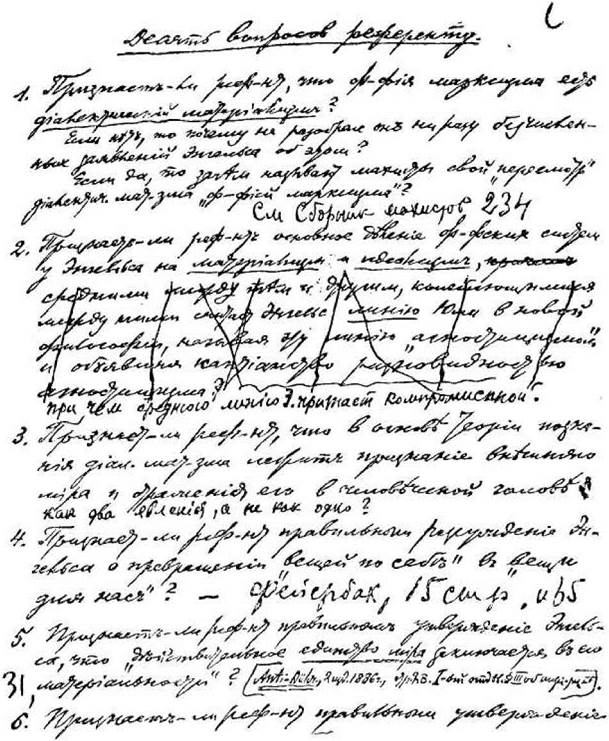 Десять вопросов референту.
1. Признает-ли реф-нт, что ф-фія марксизма есть
діалектическій матеріализмъ?
Если нѣтъ, то почему не разобрал онъ ни разу безчислен-
ных заявленій Энгельса об этом?
Если да, то зачѣм называют махисты свой "пересмотр"
діалектич. мат-зма "ф-фіей марксизма"?
См Сборник махистов 234
2. Признает-ли реф-нтъ основное дѣленіе ф-фских систем
у Энгельса на матеріализм и идеализмъ,
средними между тѣм и другим, колеблющимися
между ними считает Энгельс линію Юма в новой
философіи, называя эту линію "агностицизмом"
и объявляя кантіанство разновидностью
агностицизма?
при чем среднюю линію Э. признает компромиссной?
3. Признает-ли реф-нт, что в основѣ теоріи позна-
нія діал. мат-зма лежит признаніе внѣшняго
міра и отраженія его в человѣческой головѣ
как два явленія, а не как одно?
4. Признает-ли реф-нт правильным разсужденіе Эн-
гельса о превращеніи "вещей по себѣ" въ "вещи
для насъ"? — Фейербак, 15 стр,
5. Признает-ли реф-нт правильным утвержденіе Энгель-
са, что "дѣйствительное единство міра заключается въ его
31, матеріальности"? (Anti-Dühr, 2 изд. 1886г.,
6. Признает-ли реф-нт правильным утвержденіе